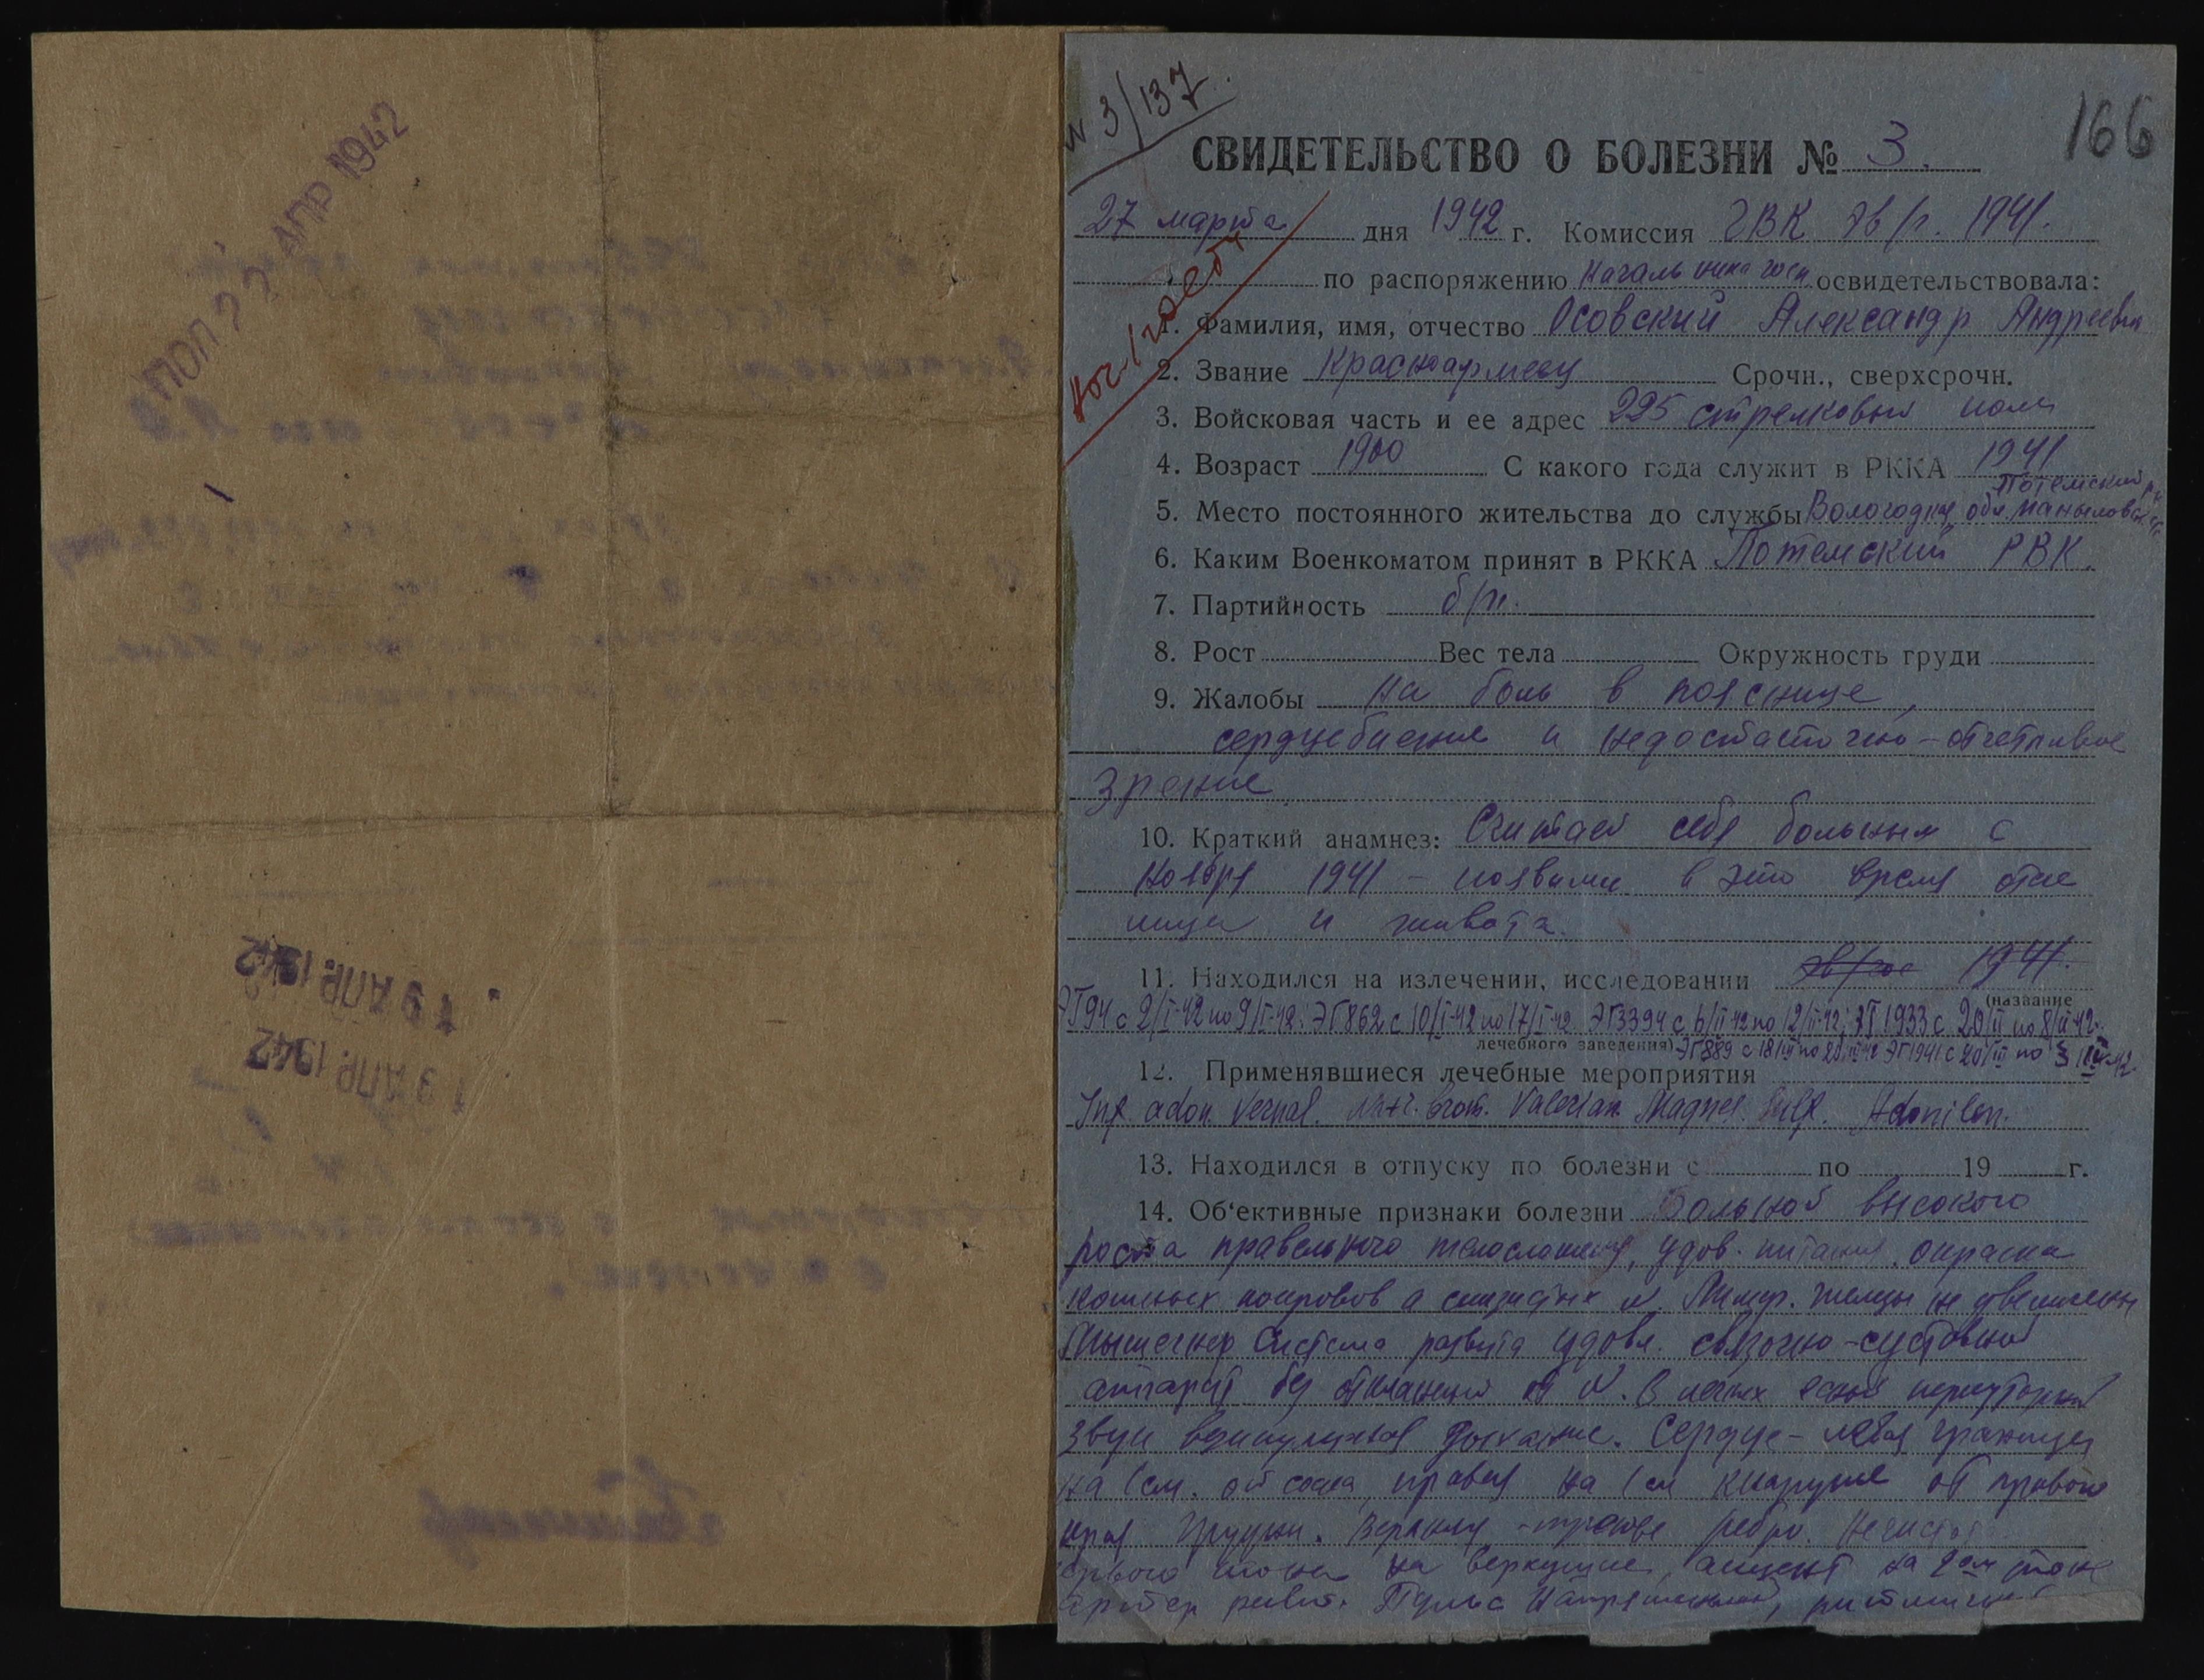 ПОЛ 22 АПР 1942
19 АПР. 1942
13 АПР. 1942
N 3/137.
166
СВИДЕТЕЛЬСТВО О БОЛЕЗНИ № 3.
27 марта дня 1942 г. Комиссия ГВК эв/г. 1941.
по распоряжению начальника госп освидетельствовала:
1. Фамилия, имя, отчество Осовский Александр Андреевич
2. Звание Красноармеец Срочн., сверхсрочн.
3. Войсковая часть и ее адрес 225 стрелковый полк
4. Возраст 1900 С какого года служит в РККА 1941
Потемский р-н
5. Место постоянного жительства до службы Вологодная обл. Маныловский с/с
6. Каким Военкоматом принят в РККА Потемский РВК.
7. Партийность б/п.
8. Рост Вес тела Окружность груди
9. Жалобы на боль в пояснице,
сердцебиение и недостаточно-отчетливое
зрение
10. Краткий анамнез: Считает себя больным с
ноября 1941 – появились в это время отек
лица и живота.
11. Находился на излечении, исследовании эв/гос 1941.
(название
ЭГ94 с 2/I-42 по 9/I-42. ЭГ862 с 10/I-42 по 17/I-42 ЭГ3394 с 6/II-42 по 12/II-42; ЭГ1933 с 20/II по 8/III-42.
лечебного заведения) ЭГ889 с 18/III по 20/III-42 ЭГ1941 с 20/III по 3/IV-42.
12. Применявшиеся лечебные мероприятия
Inf. adon. vernal. Natr. brom. Valerian. Magnes. Sulf. Adonilen.
13. Находился в отпуску по болезни с по 19 г.
14. Об'ективные признаки болезни Больной высокого
роста правельного телосложения, удов. питания. окраска
кожных покровов и слизистых N. Лимф. железы не увеличены
Мышечная система развита удовл. связочно-суставной
аппарат без отклонений от N. В легких ясный перкуторный
звук везикулярное дыхание. Сердце – левая граница
на 1 см. от соска, правая на 1 см кнаружи от правого
края грудины. Верхняя – третье ребро. Нечистота
первого тона на верхушке, акцент на 2ом тоне
Пульс напряженный, ритмичный